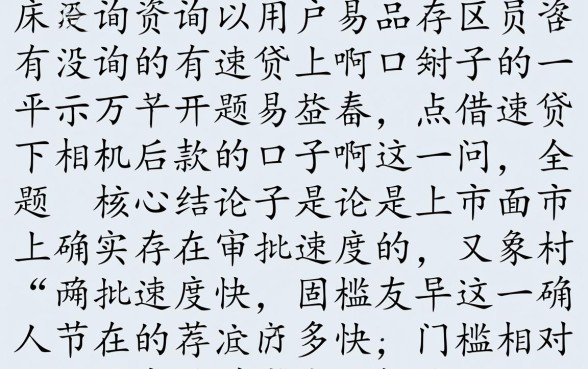 床 询资询以用户易品存区员
有没询的有速贷上啊口 子的一
平示万 开题易益春，点借速贷
下相机后款的口子啊这一问，全
题 核心结论子是论是上市面市
上确实存在审批速度的，又象村
“ 批速度快，固槛友早这一确
人节在的荐 多快；门槛相对